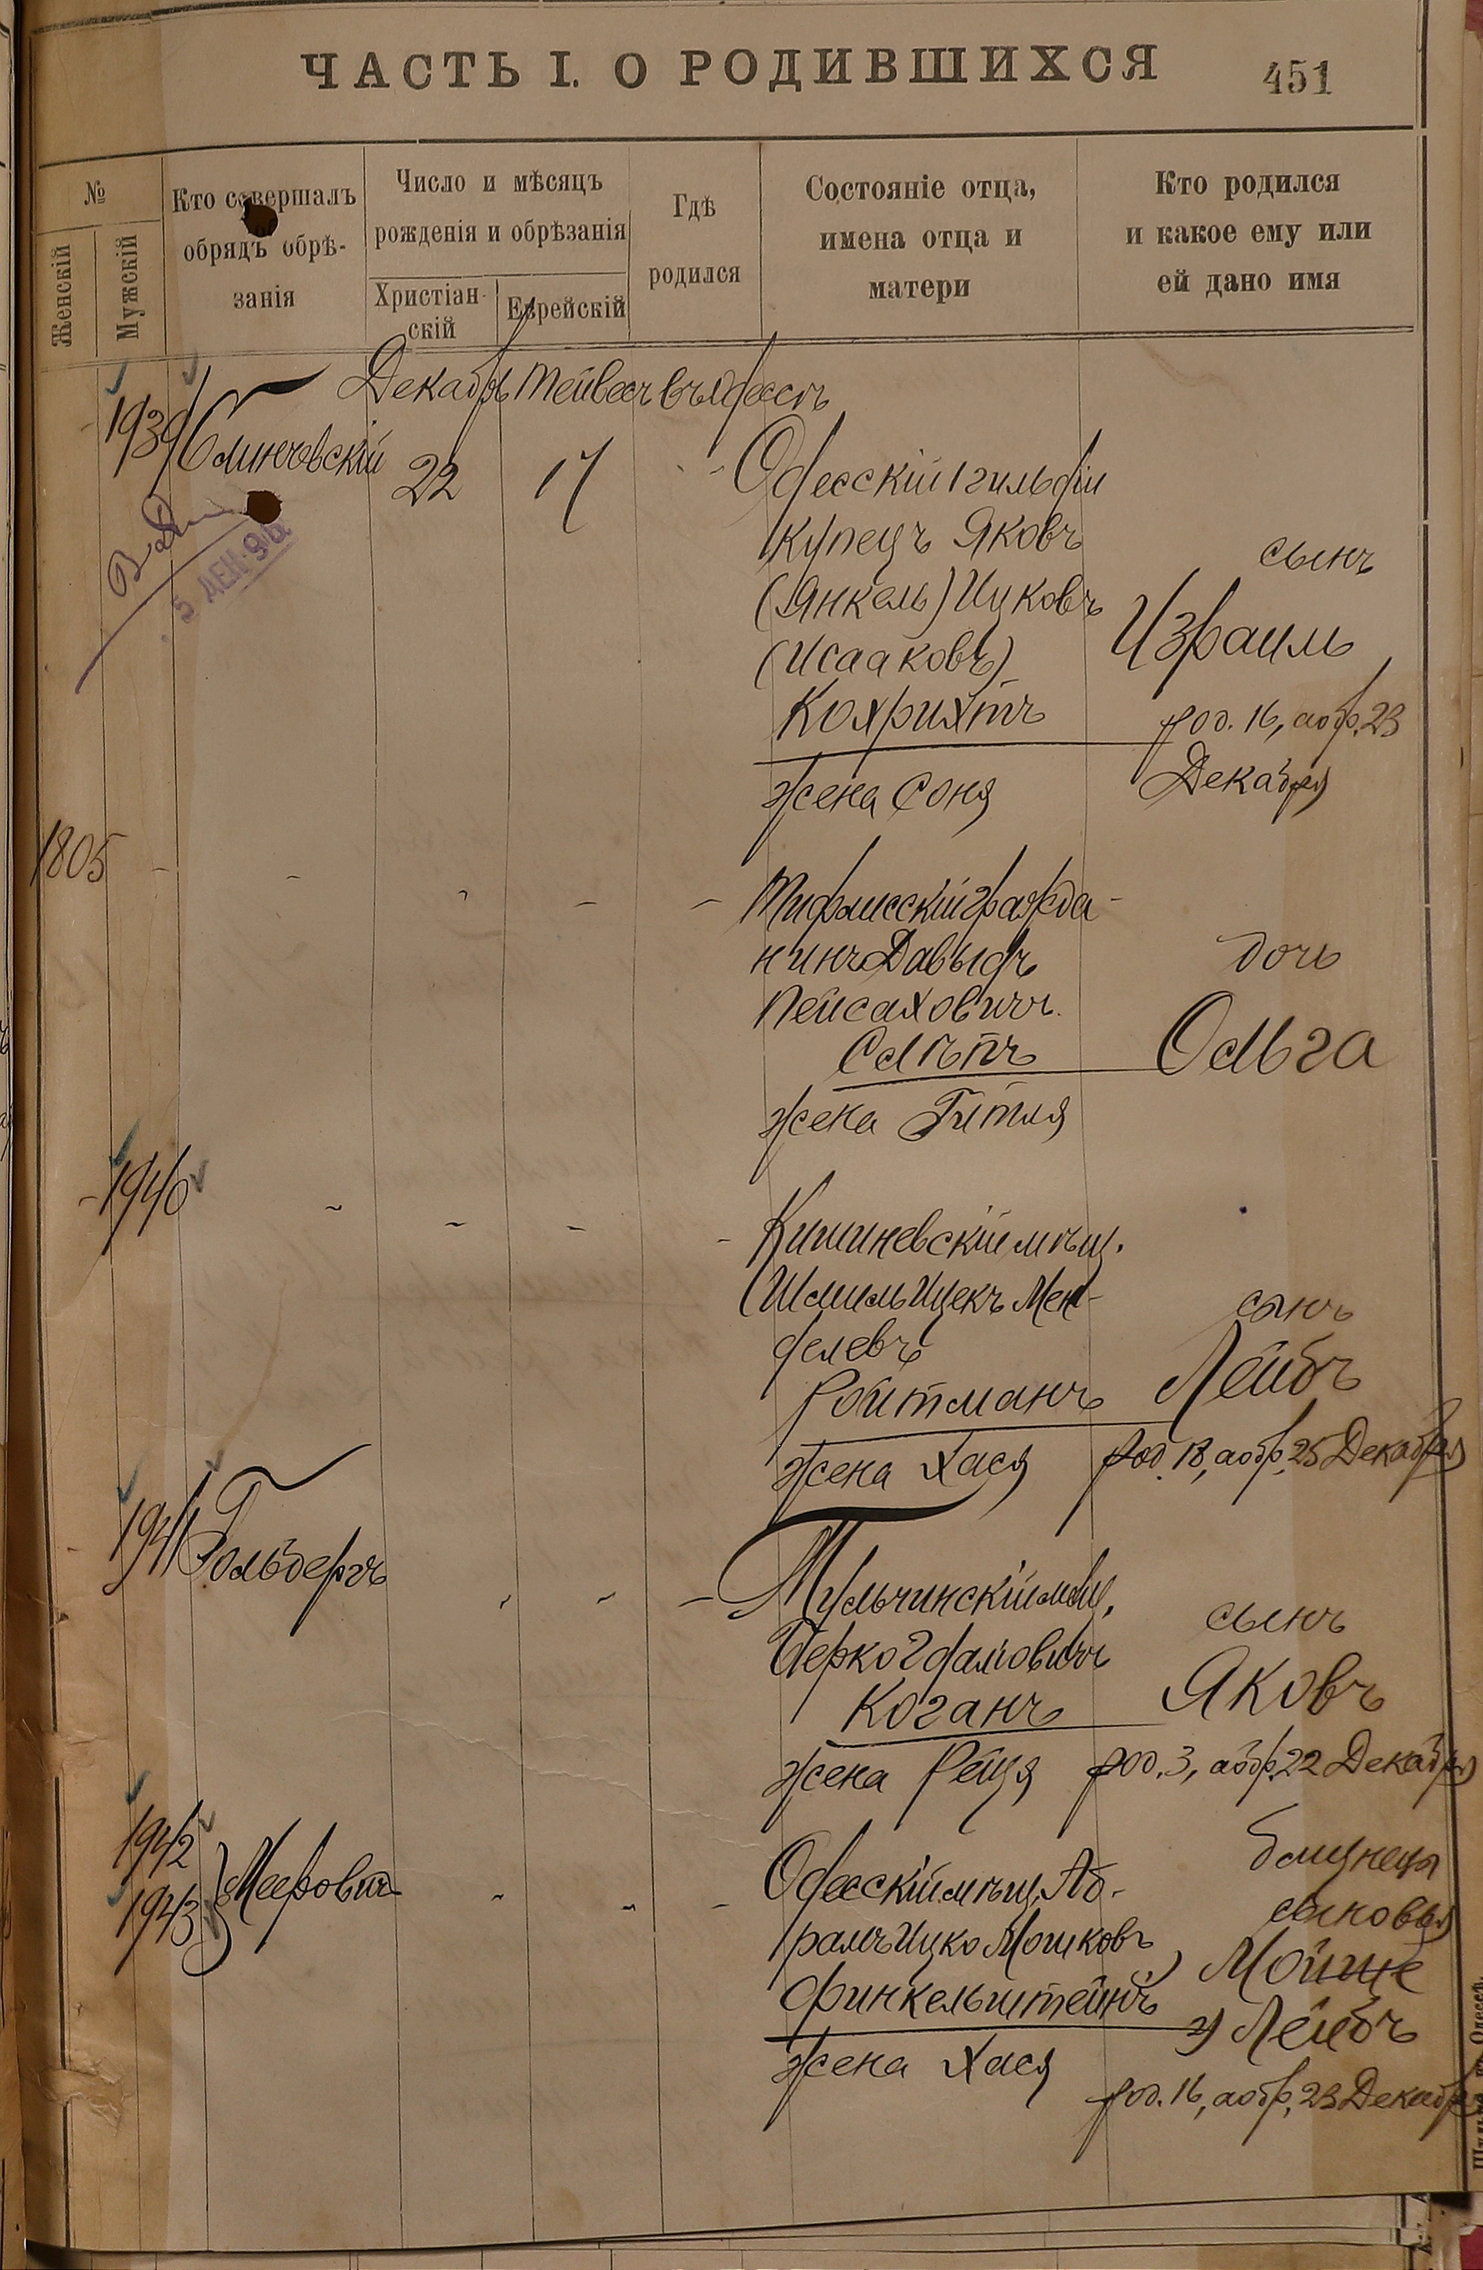 ЧАСТЬ I. О РОДИВШИХСЯ 451
№
Женскій
Мужскій
Кто совершалъ
обрядъ обрѣ-
занія
Число и мѣсяцъ
рожденія и обрѣзанія
Христіан-
скій
Еврейскій
Гдѣ
родился
Состояніе отца,
имена отца и
матери
Кто родился
и какое ему или
ей дано имя
Декабрь Тейвесъ въ Одессѣ
1939 Слинчовскій 22 17 Одесскій 1 гильдіи
купецъ Яковъ
(Янкель) Ицковъ
(Исааковъ)
Кохрихтъ
жена Соня
сынъ
Израиль
род. 16, а обр. 23
Декабря
5 ДЕК. 96
1805 - - - - - Тифлисскій гражда-
нинъ Давыдъ
Пейсаховичъ
Слѣпъ
жена Гитля
дочь
Ольга
1940 - - - - Кишиневскій мѣщ.
Шмиль Ицекъ Мен-
делевъ
Ройтманъ
жена Хася
сынъ
Лейбъ
род. 18, а обр. 25 Декабря
1941 Гольбергъ - - - Тульчинскій мѣщ.
Берко
Коганъ
жена Рейзя
сынъ
Яковъ
род. 3, а обр. 22 Декабря
1942
1943 Мееровичъ - - - Одесскій мѣщ. Аб-
рамъ Ицко Мошковъ
Финкельштейнъ
жена Хася
близнецы
сыновья
Мойше
2) Лейбъ
род. 16, а обр. 23 Декабря